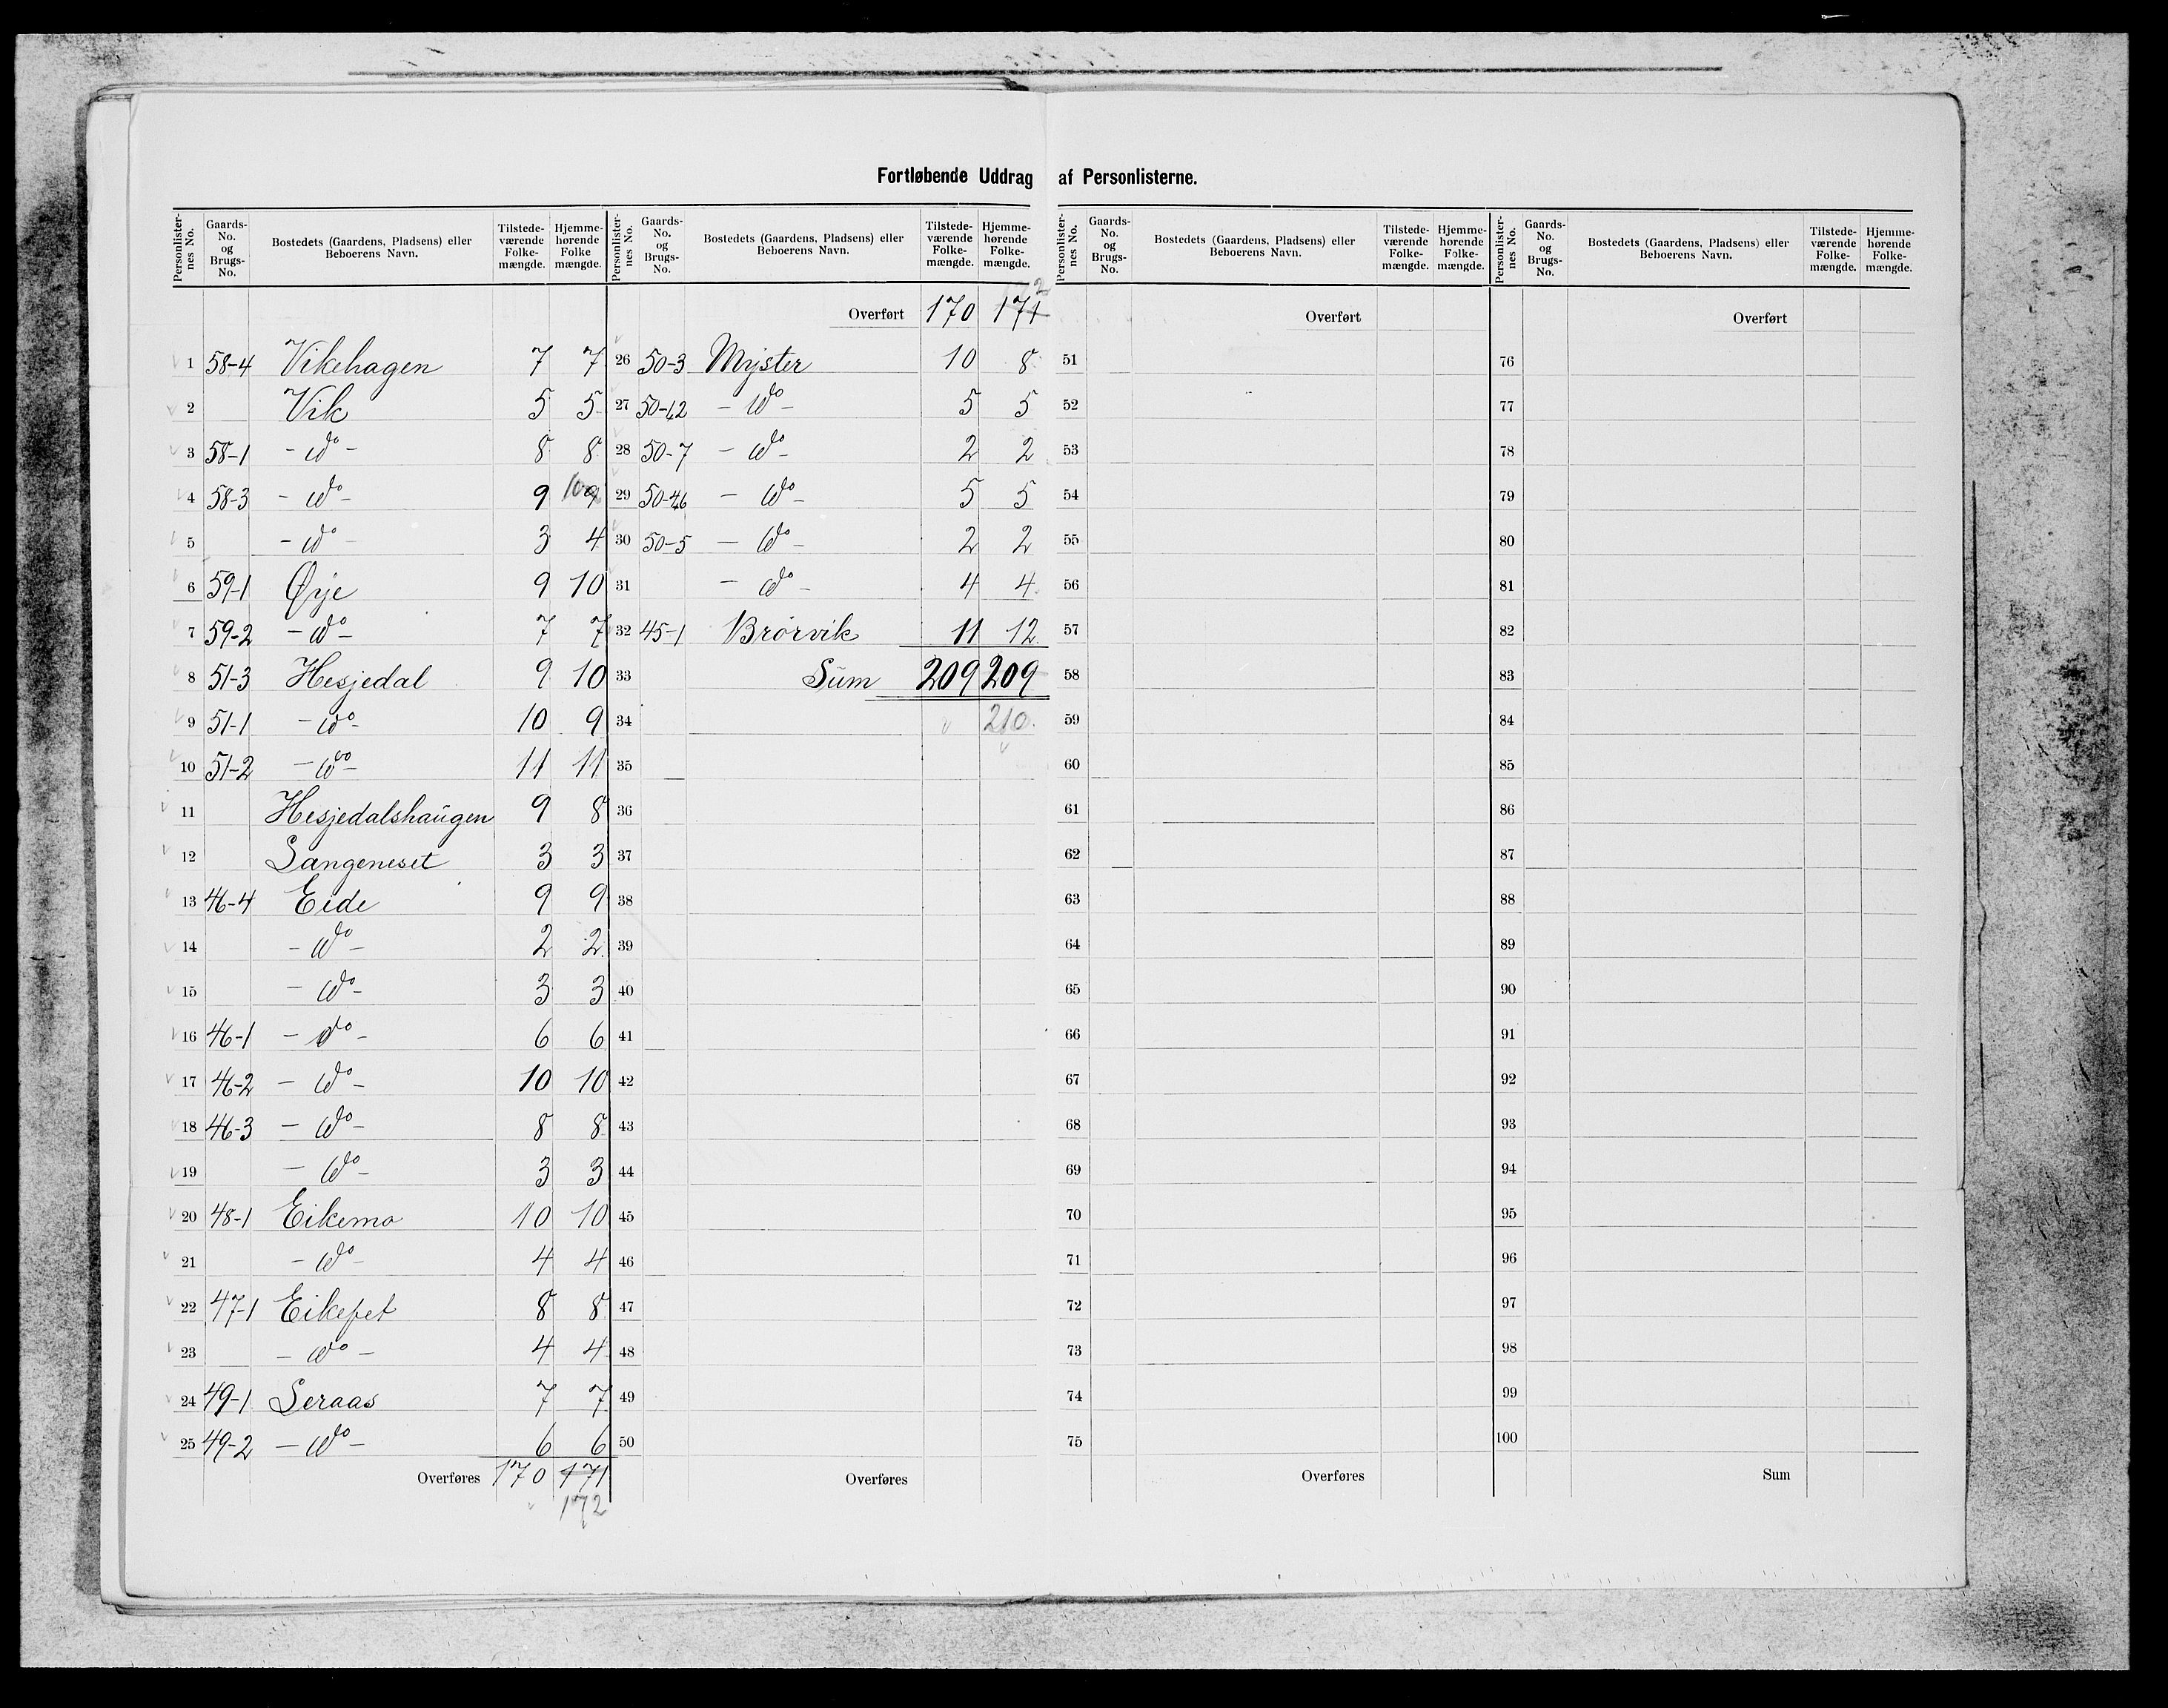 Fortløbende Uddrag af Personlisterne.
Personlister-nes No. | Gaards-No. og Brugs-No. | Bostedets (Gaardens, Pladsens) eller Beboerens Navn. | Tilstede-værende Folke-mængde. | Hjemme-hørende Folke mængde.
1 58-4 Vikehagen 7 7
2 Vik 5 5
3 58-1 - do - 8 8
4 58-3 - do - 9 10 9
5 - do - 3 4
6 59-1 Øije 9 10
7 59-2 - do - 7 7
8 51-3 Hesjedal 9 10
9 51-1 - do - 10 9
10 51-2 - do - 11 11
11 Hesjedalshaugen 9 8
12 Langeneset 3 3
13 46-4 Eide 9 9
14 - do - 2 2
15 - do - 3 3
16 46-1 - do - 6 6
17 46-2 - do - 10 10
18 46-3 - do - 8 8
19 - do - 3 3
20 48-1 Eikemo 10 10
21 - do - 4 4
22 47-1 Eikefet 8 8
23 - do - 4 4
24 49-1 Leraas 7 7
25 49-2 - do - 6 6
Overføres 170 171
172
Personlister-nes No. | Gaards-No. og Brugs-No. | Bostedets (Gaardens, Pladsens) eller Beboerens Navn. | Tilstede-værende Folke-mængde. | Hjemme-hørende Folke-mængde.
Overført 170 171 2
26 50-3 Myster 10 8
27 50-12 - do - 5 5
28 50-7 - do - 2 2
29 - do - 5 5
30 50-5 - do - 2 2
31 - do - 4 4
32 45-1 Brørvik 11 12
33 Sum 209 209
34 210
35
36
37
38
39
40
41
42
43
44
45
46
47
48
49
50
Overføres
Personlister-nes No. | Gaards-No. og Brugs-No. | Bostedets (Gaardens, Pladsens) eller Beboerens Navn. | Tilstede-værende Folke-mængde. | Hjemme-hørende Folke-mængde.
Overført
51
52
53
54
55
56
57
58
59
60
61
62
63
64
65
66
67
68
69
70
71
72
73
74
75
Overføres
Personlister-nes No. | Gaards-No. og Brugs-No. | Bostedets (Gaardens, Pladsens) eller Beboerens Navn. | Tilstede-værende Folke-mængde. | Hjemme-hørende Folke-mængde.
Overført
76
77
78
79
80
81
82
83
84
85
86
87
88
89
90
91
92
93
94
95
96
97
98
99
100
Sum